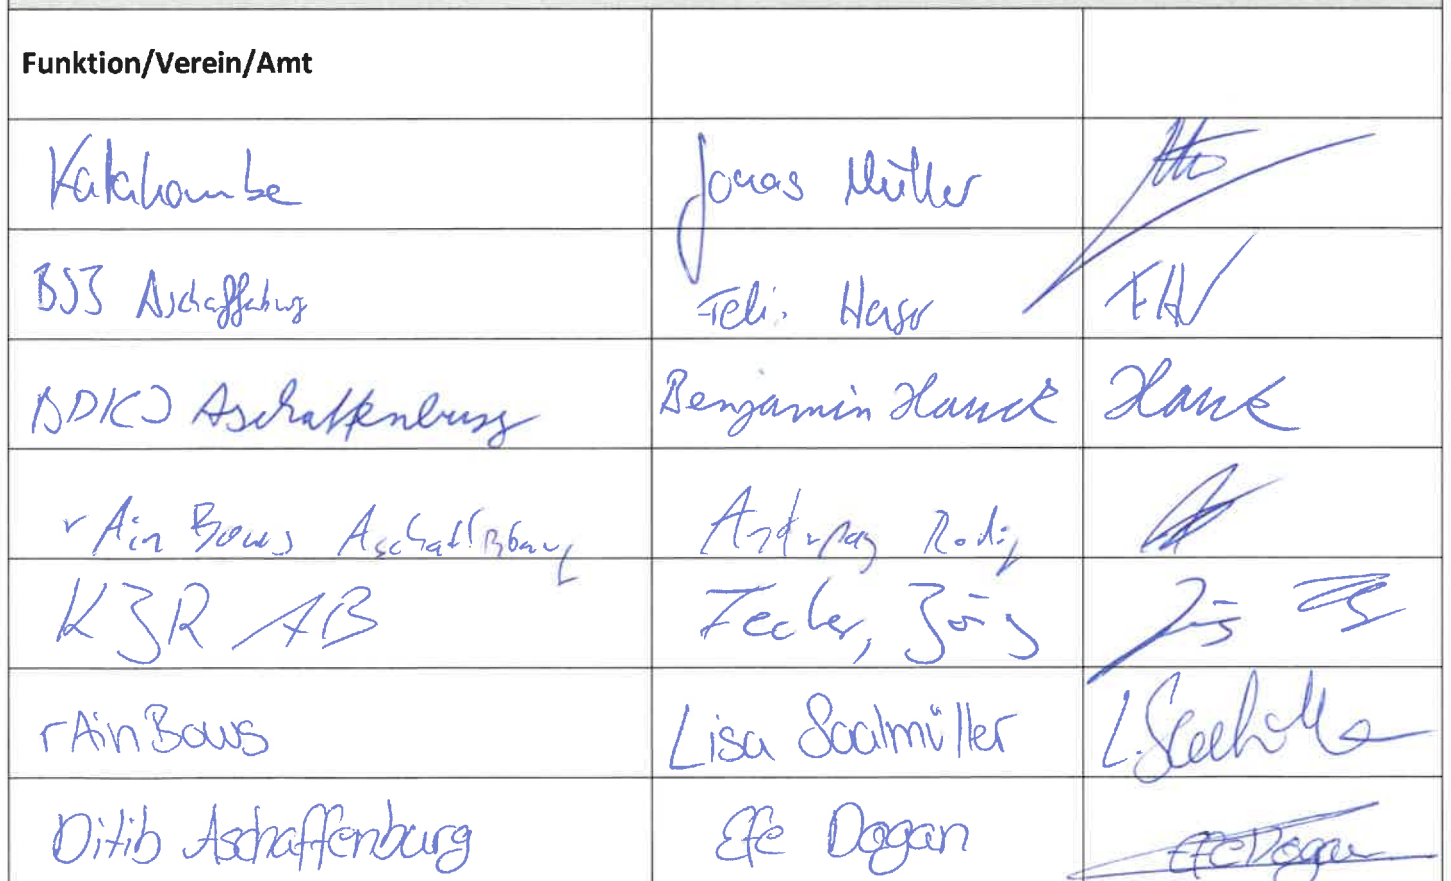 Funktion/Verein/Amt
Katakombe Jonas Müller
BSJ Aschaffenburg Felix
BDKJ Aschaffenburg Benjamin Hauck Hauck
rAinBows Aschaffenburg
KJR AB Zecher, Jörg Jörg
rAinBows Lisa Saalmüller L. Saalmüller
Ditib Aschaffenburg Efe Dogan Efe Dogan